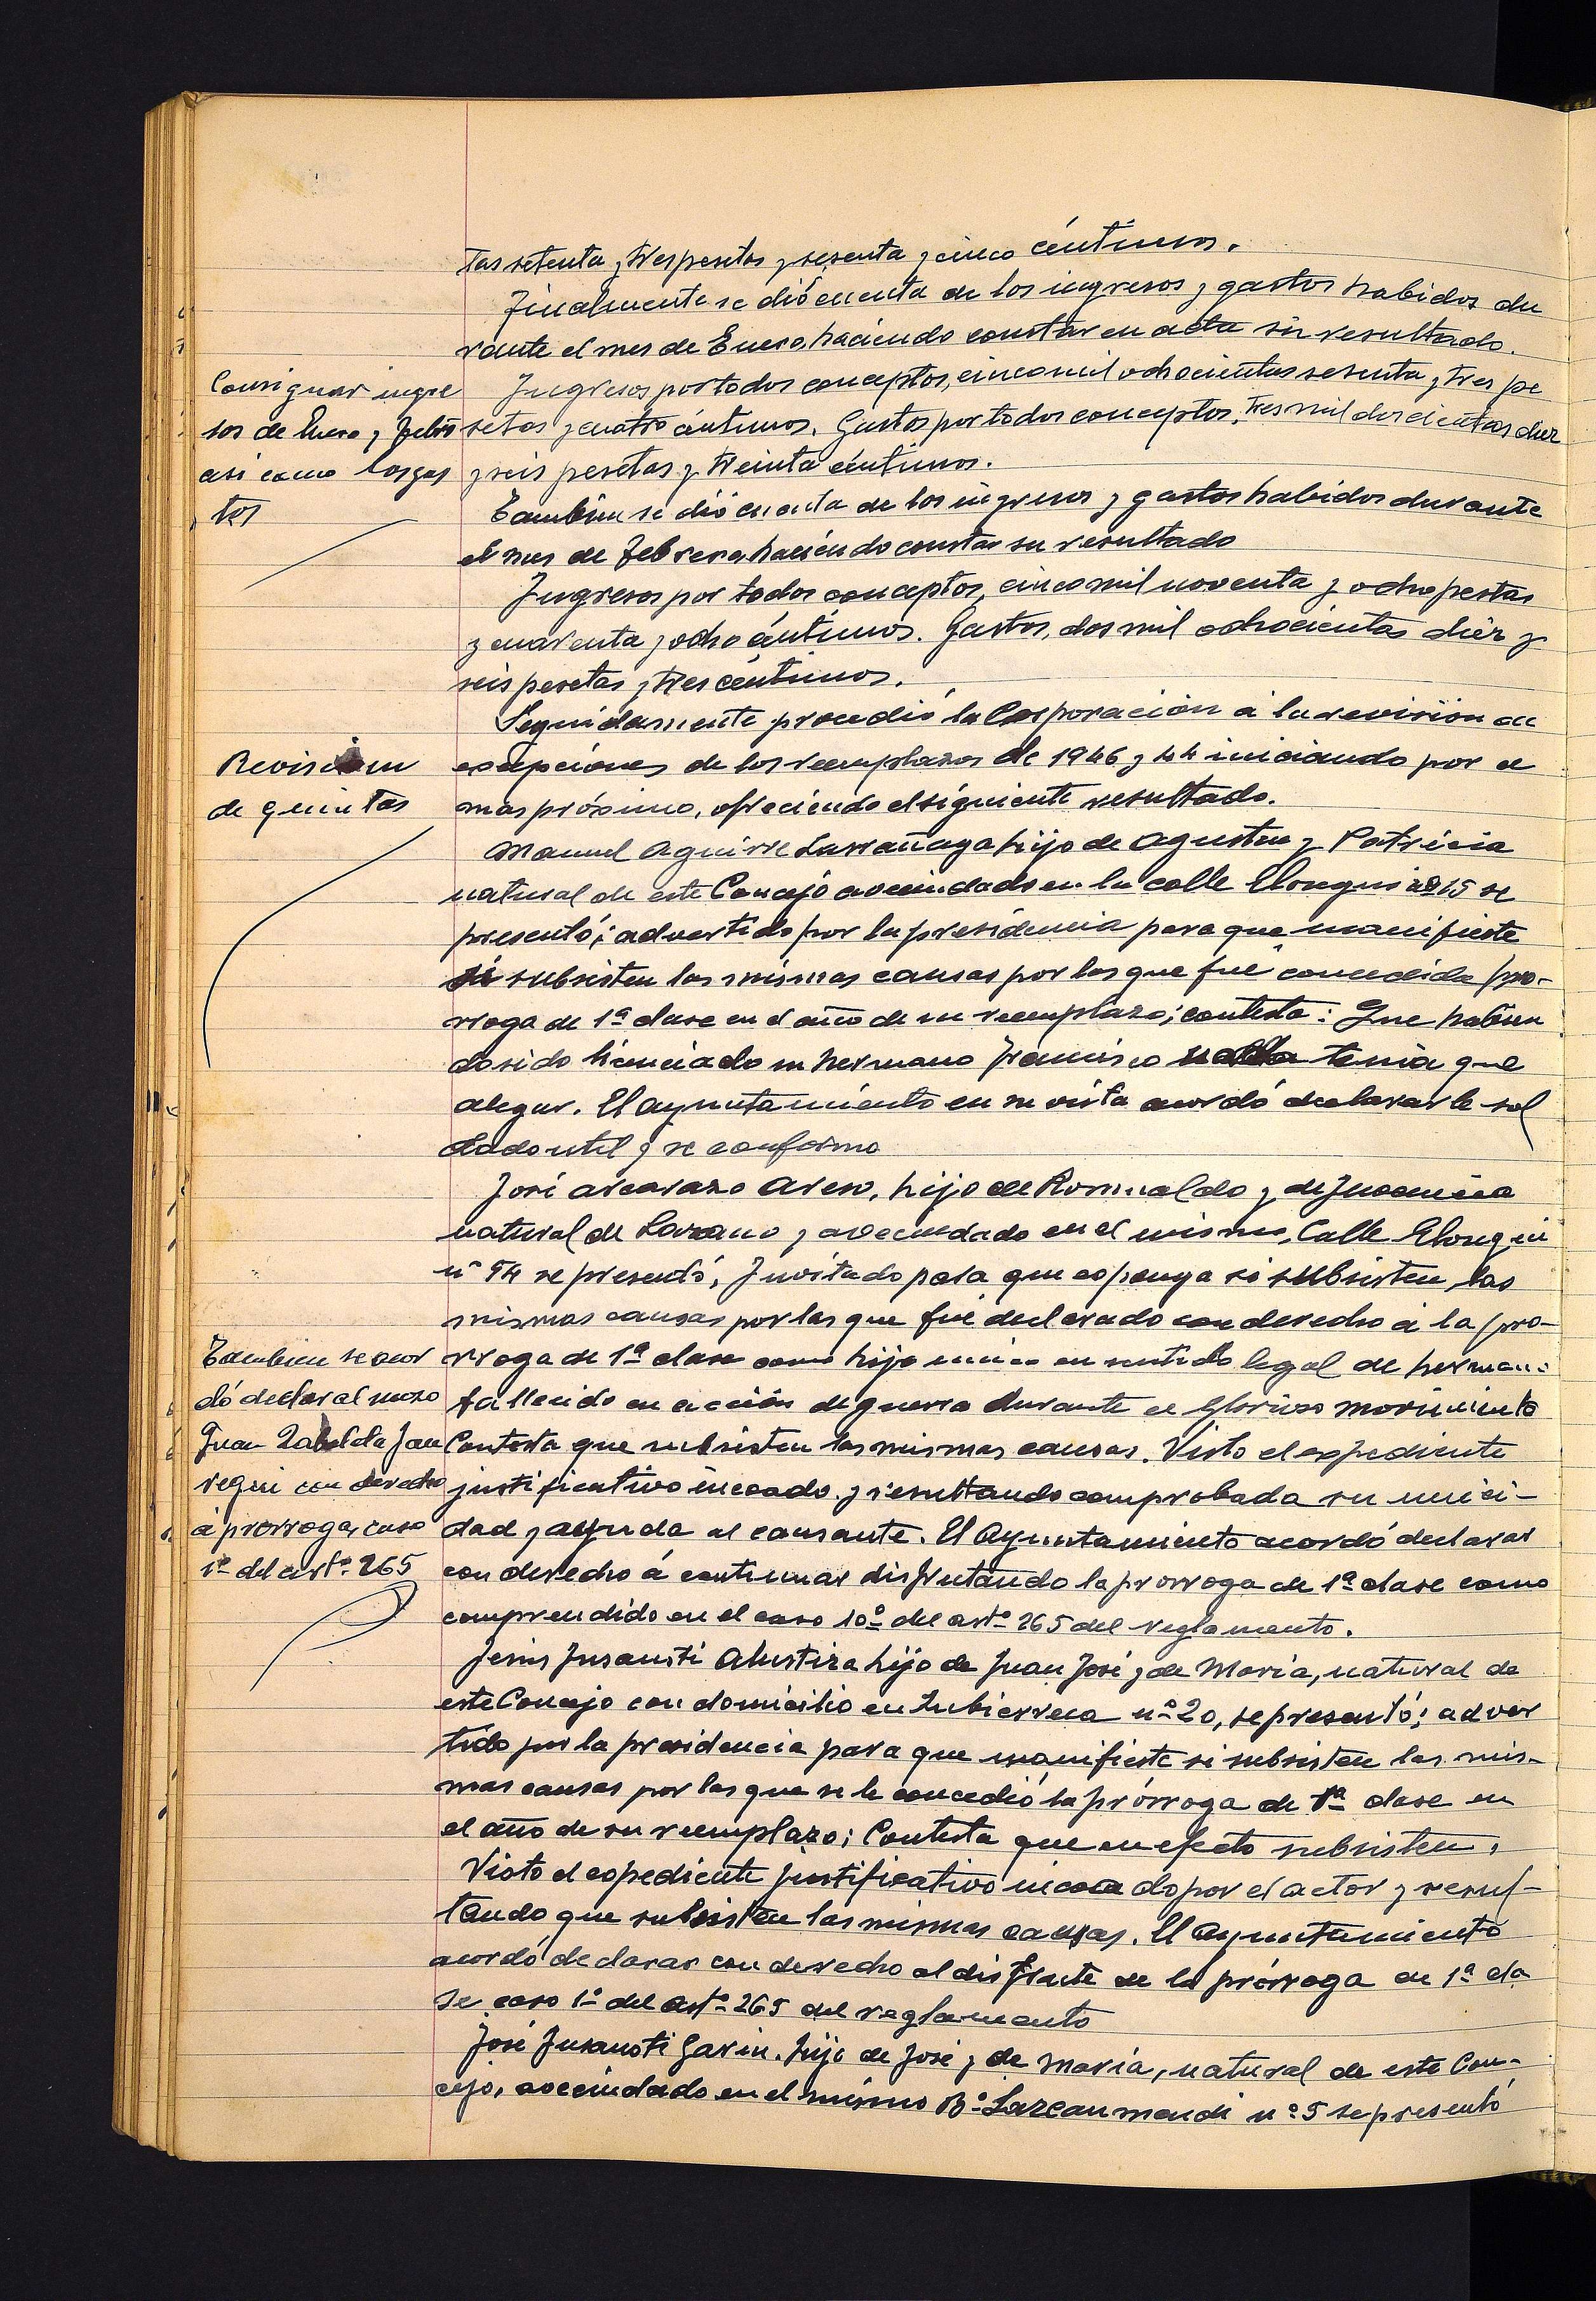 tas setenta y tres pesetas y sesenta y cinco céntimos.
Finalmente se dió cuenta de los ingresos y gastos habidos du
rante el mes de Enero, haciendo constar en acta su resultado.
Ingresos por todos conceptos, cinco mil ochocientas sesenta y tres pe
setas y cuatro céntimos. Gastos por todos conceptos, tres mil doscientas diez
y seis pesetas y treinta céntimos.
Tambien se dió cuenta de los ingresos y gastos habidos durante
el mes de Febrero, haciendo constar su resultado
Ingresos por todos conceptos, cinco mil noventa y ocho pestas
y cuarenta y ocho céntimos. Gastos, dos mil ochocientas diez y
seis pesetas y tres céntimos.
Seguidamente procedió la Corporación á la revisión de
excepciones de los reemplazos de 1946 y 44 iniciando por el
mas próximo, ofreciendo el siguiente resultado.
Manuel Aguirre Larrañaga hijo de Agustin y Patricia
natural de este Concejo avecindado en la calle Elosegui nº 15 se
presentó; advertido por la presidencia para que manifieste
si subsisten las mismas causas por las que fué concedida pro-
rroga de 1ª clase en el año de su reemplazo; contesta: Que habien
do sido licenciado su hermano Francisco nada tenia que
alegar. El ayuntamiento en su vista acordó declararle sol
dado util y se conformo
José arcarazo Areso, hijo de Romualdo y de Juanita
natural de Lazcano y avecindado en el mismo, Calle Elosegui
nº 54 se presentó, Invitado para que exponga si subsisten las
mismas causas por las que fué declarado con derecho á la pro-
rroga de 1ª clase como hijo unico en sentido legal de hermano
fallecido en acción de guerra durante el Glorioso movimiento
Contesta que subsisten las mismas causas. Visto el expediente
justificativo incoado y resultando comprobada su unici-
dad y ayuda al causante. El Ayuntamiento acordó declarar
con derecho á continuar disfrutando la prorroga de 1ª clase como
comprendido en el caso 10º del artº 265 del reglamento.
Jesus Insausti Alustiza hijo de Juan José y de Maria, natural de
este Concejo con domicilio en Zubierreca nº 20, se presentó; adver
tido por la presidencia para que manifieste si subsisten las mis-
mas causas por las que se le concedió la prórroga de 1ª clase en
el año de su reemplazo; Contesta que en efecto subsisten.
Visto el expediente justificativo incoado por el actor y resul-
tando que subsisten las mismas causas. El Ayuntamiento
acordó declarar con derecho al disfrute de la prórroga de 1ª cla
se caso 1º del artº 265 del reglamento
José Insausti Garin. hijo de José y de Maria, natural de este Con-
cejo, avecindado en el mismo Bº Lazcanmendi nº 5 se presentó
Consignar ingre
sos de Enero y Febro
asi como los gas
tos
Revision
de quintas
Tambien se acor
dó declar al mozo
Juan Zabalda Jau
regui con derecho
á prorroga, caso
1º del artº 265